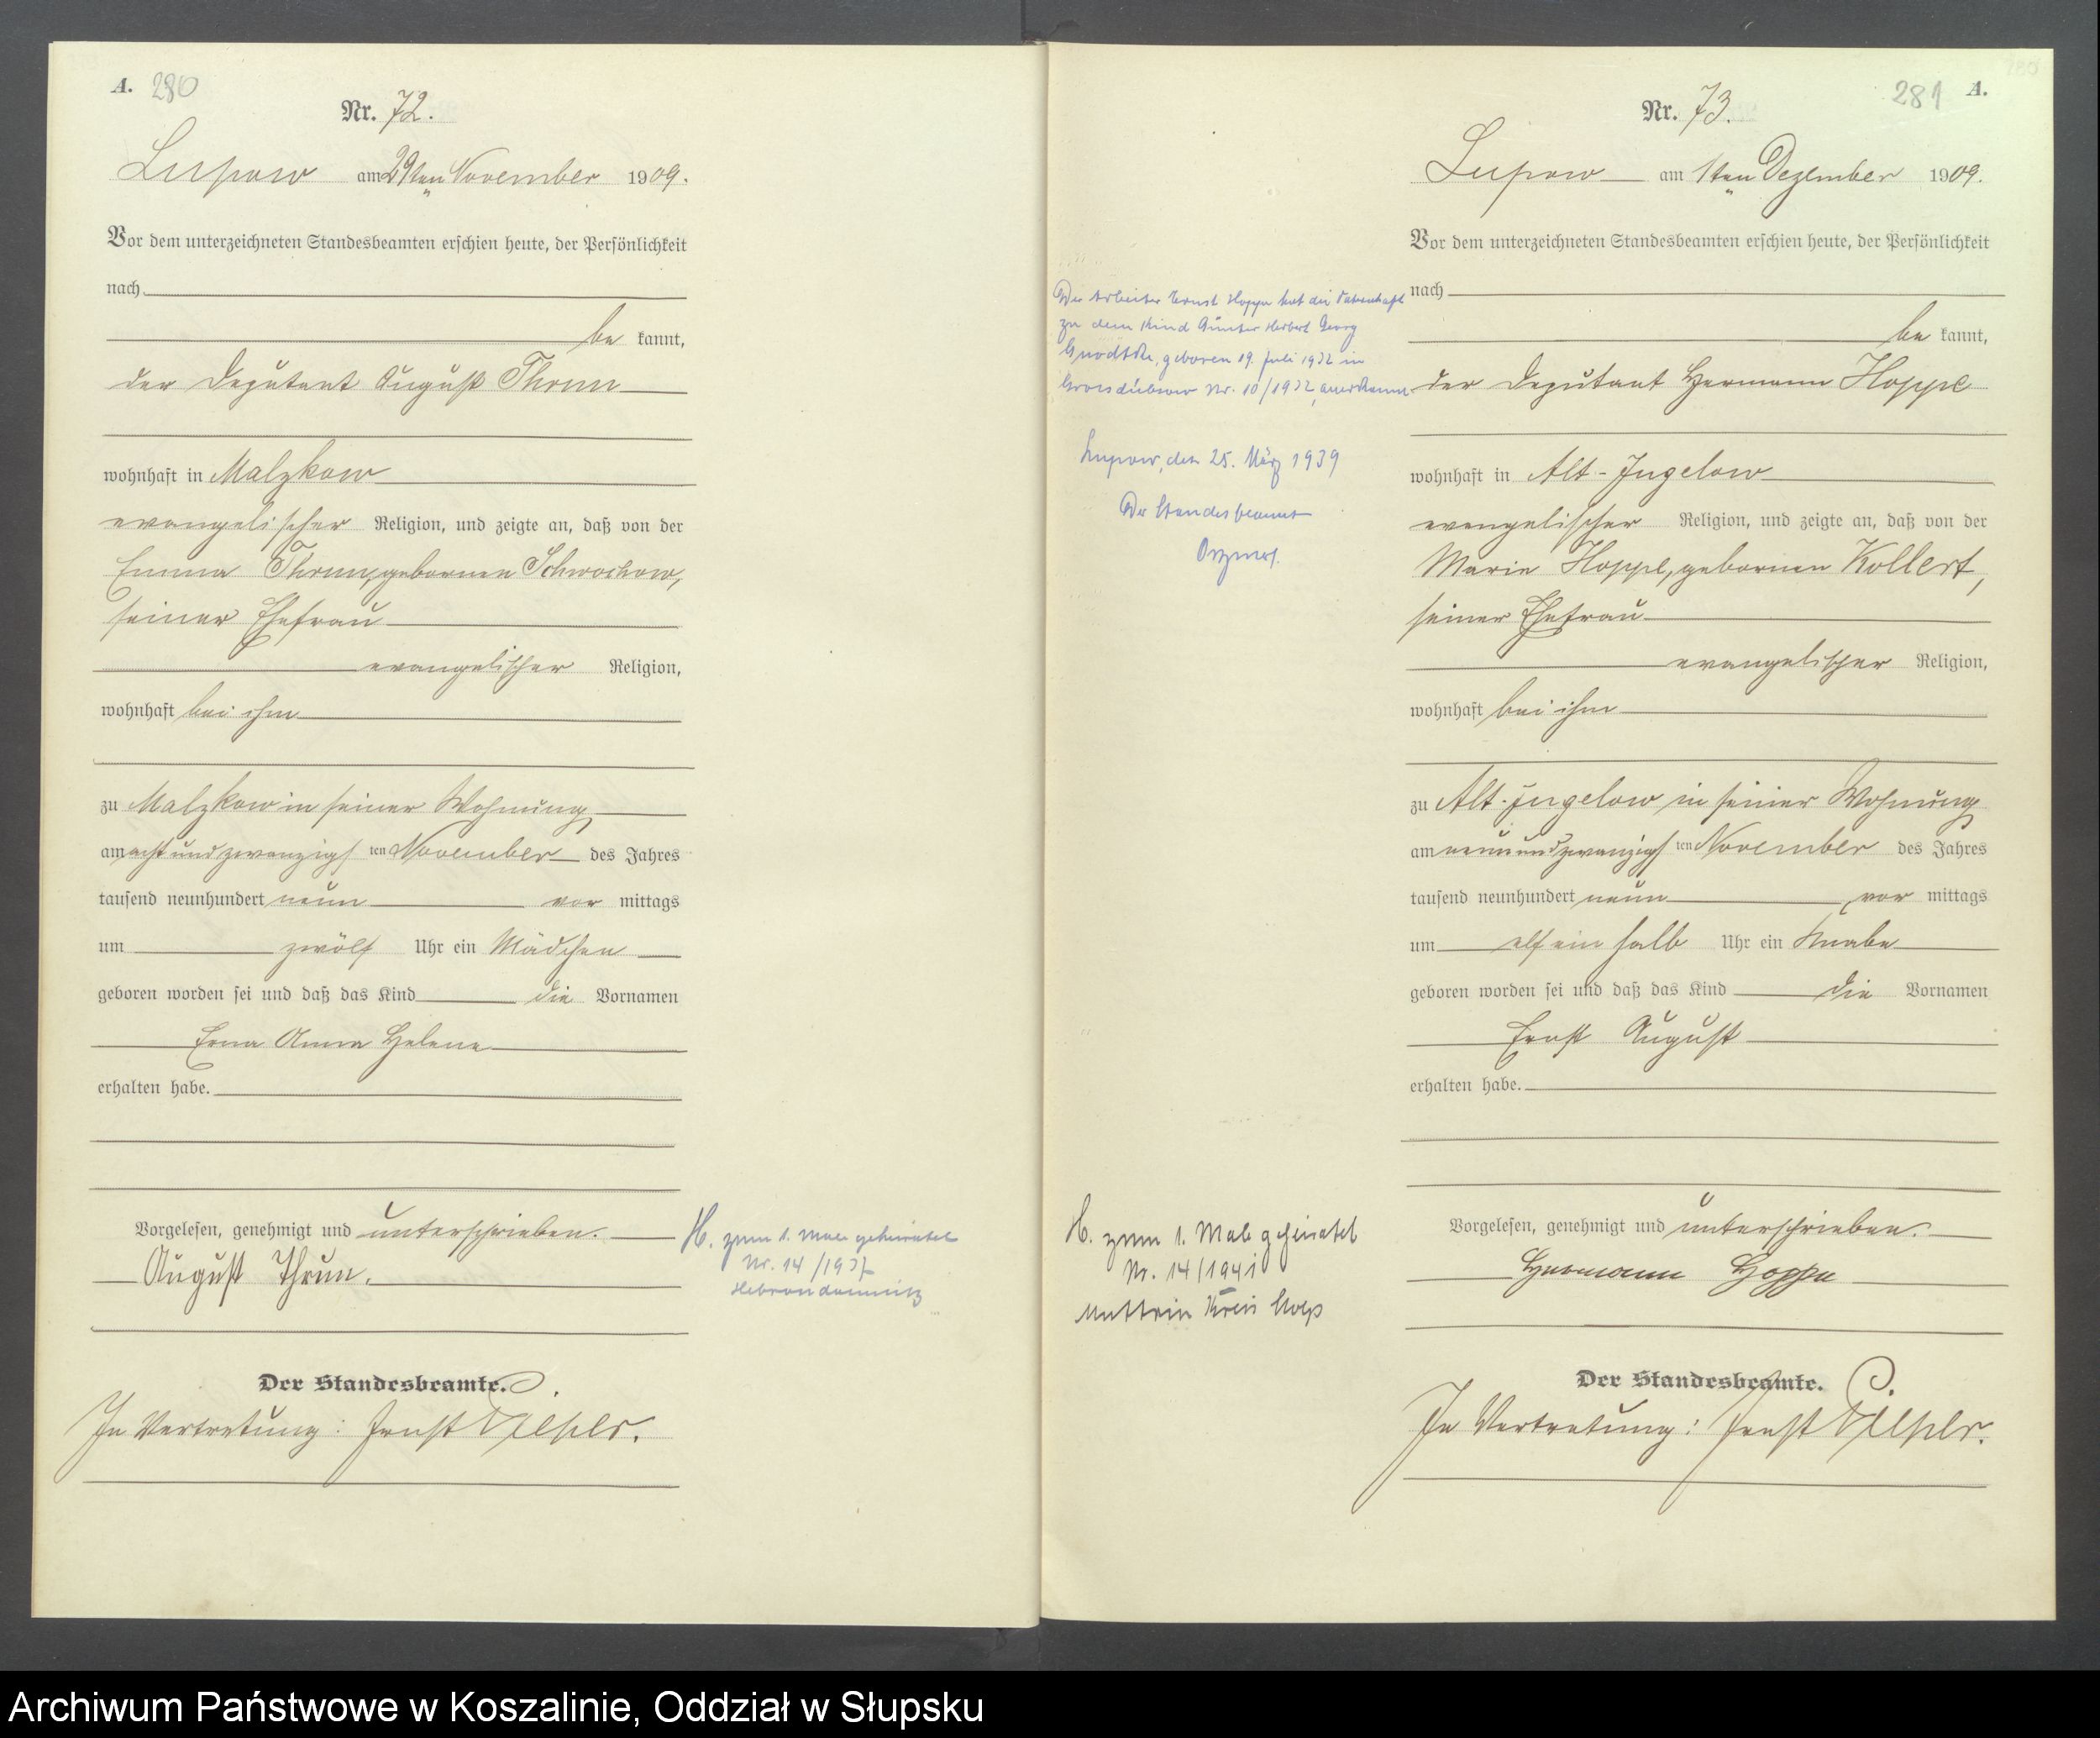 A. 280
Nr. 72.
Lupow am 29ten November 1909.
Vor dem unterzeichneten Standesbeamten erschien heute, der Persönlichkeit
nach
be kannt,
der Deputant August Thrun
wohnhaft in Malzkow
evangelischer Religion, und zeigte an, daß von der
Emma Thrun, geborenen Schwochow,
seiner Ehefrau
evangelischer Religion,
wohnhaft bei ihm
zu Malzkow in seiner Wohnung
am acht und zwanzigs ten November des Jahres
tausend neunhundert neun vor mittags
um zwölf Uhr ein Mädchen
geboren worden sei und daß das Kind die Vornamen
Erna Anna Helene
erhalten habe.
Vorgelesen, genehmigt und unterschrieben.
August Thrun.
Der Standesbeamte.
In Vertretung: Ernst
H. zum 1. Male geheiratet
Nr. 14/1937
Hebrondamnitz
281 A.
Nr. 73.
Lupow am 1ten Dezember 1909.
Vor dem unterzeichneten Standesbeamten erschien heute, der Persönlichkeit
nach
be kannt,
der Deputant Hermann Hoppe
wohnhaft in Alt-Jugelow
evangelischer Religion, und zeigte an, daß von der
Marie Hoppe, geborenen Kollert,
seiner Ehefrau
evangelischer Religion,
wohnhaft bei ihm
zu Alt-Jugelow in seiner Wohnung
am neun und zwanzigs ten November des Jahres
tausend neunhundert neun vor mittags
um elf ein halb Uhr ein Knabe
geboren worden sei und daß das Kind die Vornamen
Ernst August
erhalten habe.
Vorgelesen, genehmigt und unterschrieben.
Hermann Hoppe
Der Standesbeamte.
In Vertretung: Ernst
Der Arbeiter Ernst Hoppe hat die Vaterschaft
zu dem Kind Günter Herbert Georg
Gnodtke, geboren 19. Juli 1932 in
Grossdübsow Nr. 10/1932, anerkannt.
Lupow, den 25. März 1939
Der Standesbeamte
H. zum 1. Male geheiratet
Nr. 14/1941
Muttrin Kreis Stolp
Archiwum Państwowe w Koszalinie, Oddział w Słupsku